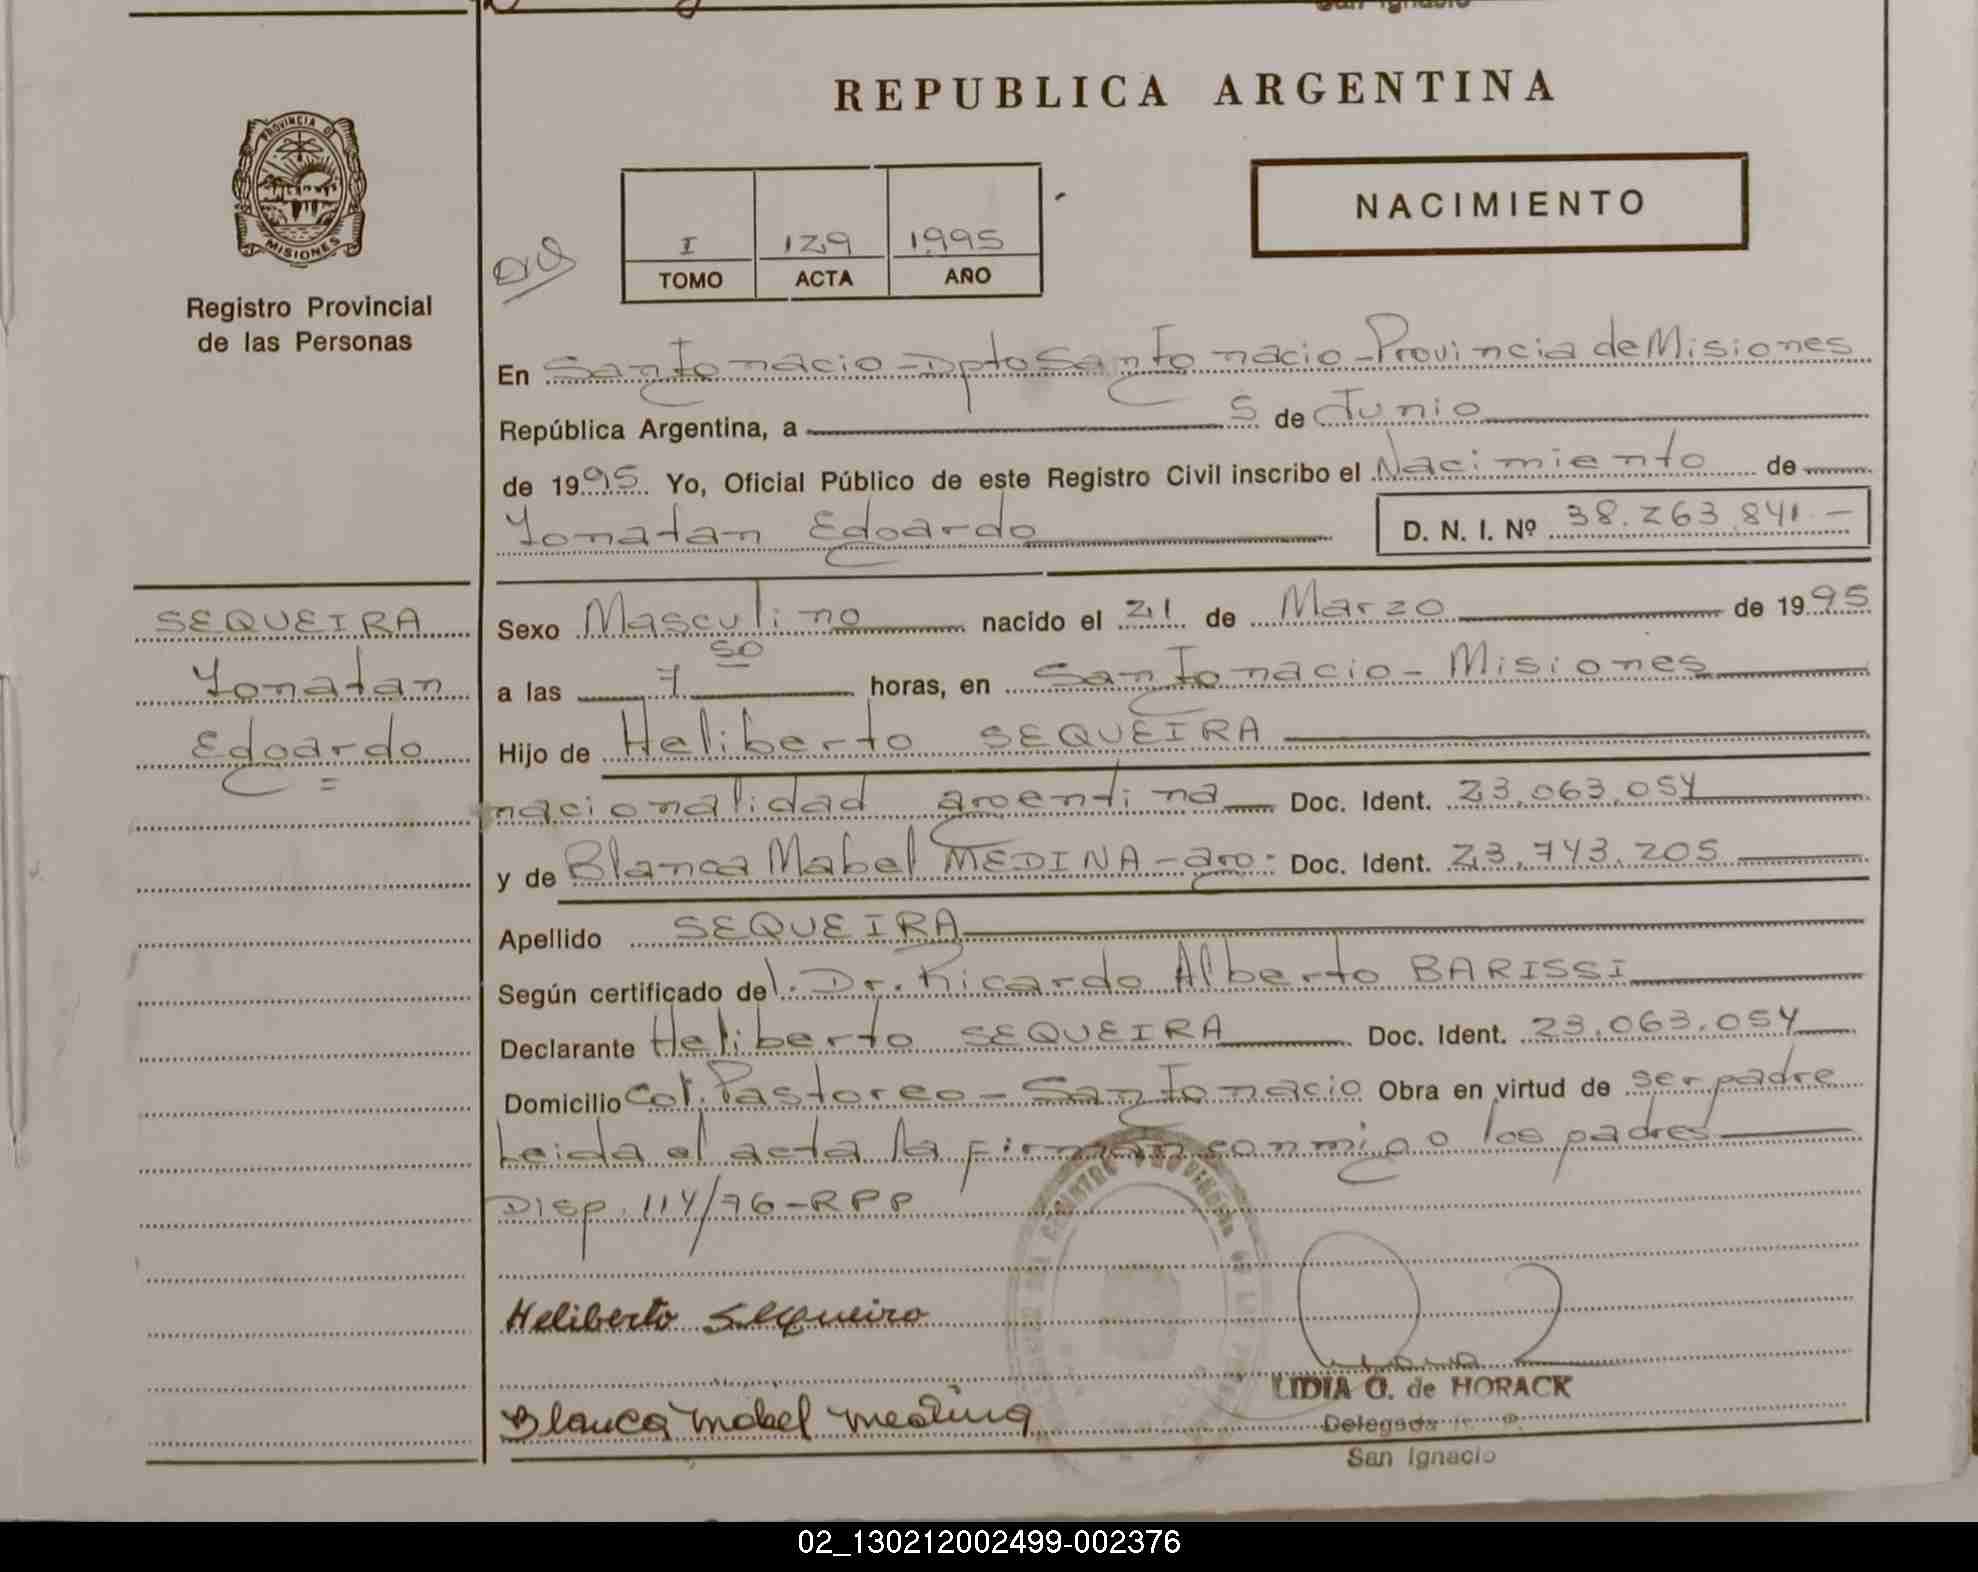 REPUBLICA ARGENTINA
PROVINCIA DE
MISIONES
Registro Provincial
de las Personas
I 129 1995
TOMO ACTA AÑO
NACIMIENTO
En San Ignacio - Dpto San Ignacio - Provincia de Misiones
República Argentina, a 5 de Junio
de 1995 Yo, Oficial Público de este Registro Civil inscribo el Nacimiento de
Yonatan Edgardo D. N. I. Nº 38.263.841.-
SEQUEIRA
Yonatan
Edgardo
Sexo Masculino nacido el 21 de Marzo de 1995
a las 7 50 horas, en San Ignacio - Misiones
Hijo de Heliberto SEQUEIRA
nacionalidad argentina Doc. Ident. 23.063.054
y de Blanca Mabel MEDINA - arg. Doc. Ident. 23.743.205
Apellido SEQUEIRA
Según certificado del. Dr. Ricardo Alberto BARISSI
Declarante Heliberto SEQUEIRA Doc. Ident. 23.063.054
Domicilio Col. Pastoreo - San Ignacio Obra en virtud de ser padre
Leida el acta la firman conmigo los padres
Disp. 114/76 - RPP
Heliberto Sequeira
Blanca Mabel Medina
LIDIA O. de HORACK
Delegada
San Ignacio
02_130212002499-002376